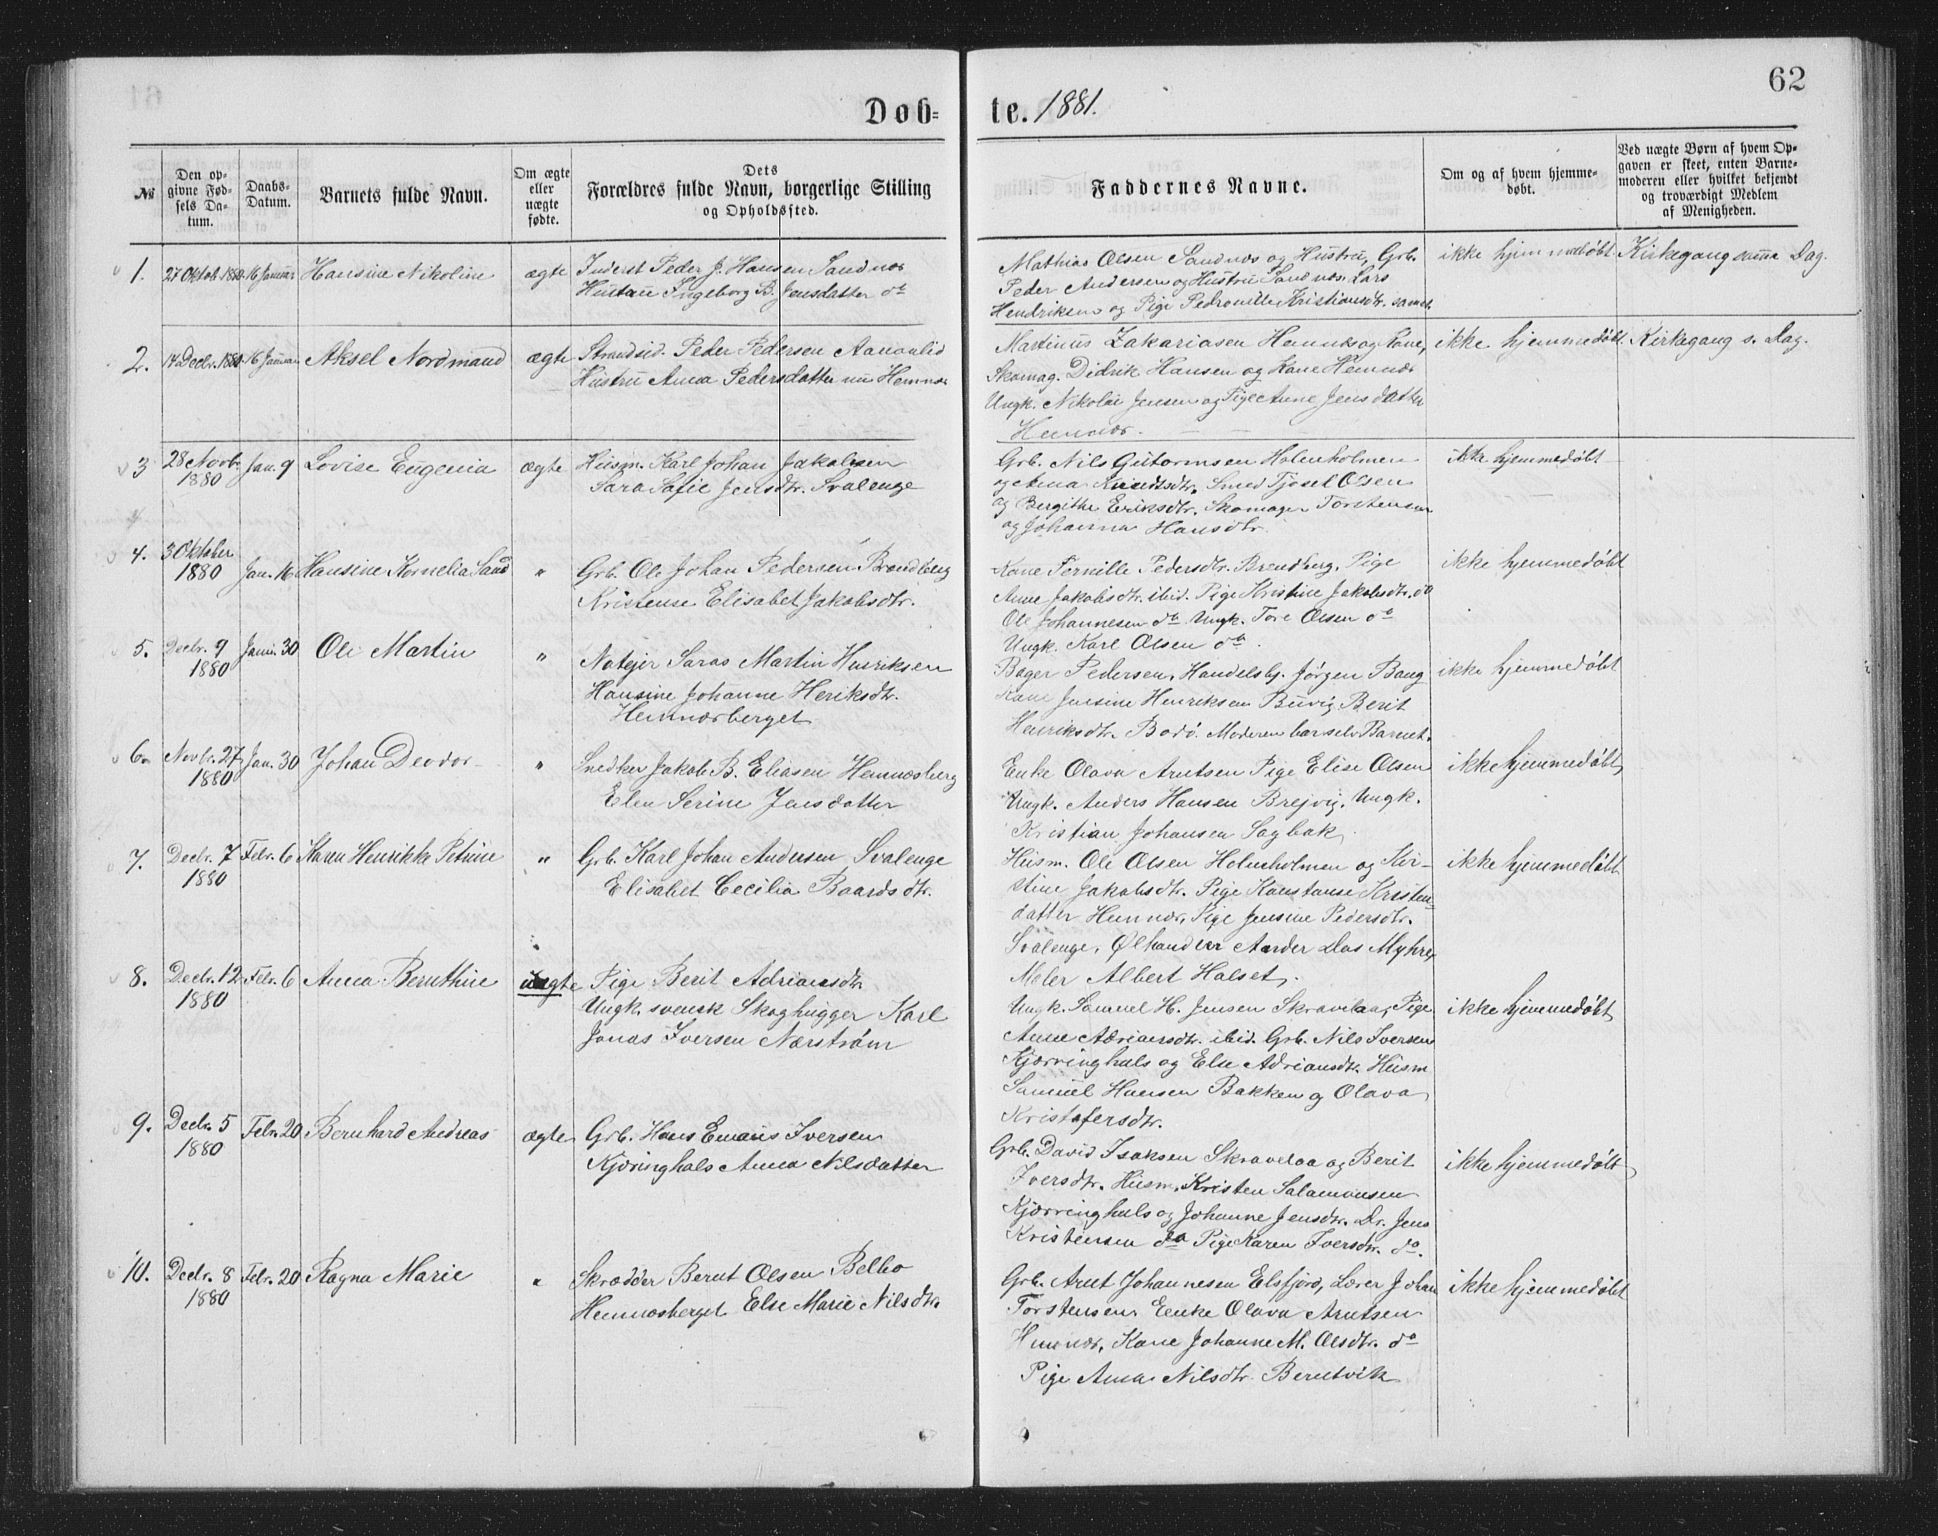 62
Døb=
te. 1881.
№
Den op-
givne Fød-
sels Da-
tum.
Daabs-
Datum.
Barnets fulde Navn.
Om ægte
eller
uægte
fødte.
Dets
Forældres fulde Navn, borgerlige Stilling
og Opholdssted.
Faddernes Navne.
Om og af hvem hjemme-
døbt.
Ved uægte Børn af hvem Op-
gaven er skeet, enten Barne-
moderen eller hvilket bekjendt
og troværdigt Medlem
af Menigheden.
1. 27 Oktob. 1880 16 Januar Hansine Nikoline ægte Inderst Peder J. Hansen Sandnes
Hustru Ingeborg B. Jensdatter do
Mathias Olsen Sandnes og Hustru, Grb.
Peder Andersen og Hustru Sandnes. Lars
Hendriksen og Pige Pedronille Kristiansdtr. samst.
ikke hjemmedøbt Kirkegang samme Dag.
2. 14 Decbr. 1880 16 Januar Aksel Nordmand ægte Strandsid. Peder Pedersen Aanonlid
Hustru Anna Pedersdatter nu Hemnæs
Martinus Zakariasen Hemnes og Kone,
Skomag. Didrik Hansen og Kone Hemnæs
Ungk. Nikolai Jensen og Pige Anne Jensdatter
Hemnæs.
ikke hjemmedøbt Kirkegang s. Dag.
3 28 Novb. Jan. 9 Lovise Eugenia ægte Husm. Karl Johan Jakobsen
1880 Sara Sofie Jensdtr. Svalenge
Grb. Nils Gutormsen Holmholmen
og Anna Knudtsdtr. Smed Tjosel Olsen
og Bergithe Eriksdtr. Skomager Torstensen
og Johanna Hansdtr.
ikke hjemmedøbt
4. 3 Oktober
1880 Jan. 16 Hansine Kornelia Sand " Grb. Ole Johan Pedersen Brendberg
Kristense Elisabet Jakobsdtr.
Kone Pernille Pedersdtr. Brendberg, Pige
Anne Jakobsdtr. ibid. Pige Kristine Jakobsdtr. do
Ole Johannesen do Ungk. Tore Olsen do
Ungk. Karl Olsen do.
ikke hjemmedøbt
5. Decbr. 9 Janu. 30 Ole Martin "
1880 Notejer Saras Martin Henriksen
Hansine Johanne Heriksdtr.
Hemnæsberget
Bager Pedersen, Handelsbj. Jørgen Bang
Kone Jensine Henriksen Buvig, Berit
Henriksdtr. Bodø. Moderen bar selv Barnet.
ikke hjemmedøbt
6. Novbr. 27 Jan. 30 Johan Deodor "
1880 Snedker Jakob B. Eliasen Hemnæsberg
Elen Serine Jensdatter
Enke Olava Arntsen Pige Elise Olsen
Ungk. Anders Hansen Brejvig, Ungk.
Kristian Johansen Sagbak
ikke hjemmedøbt
7. Decbr. 7 Febr. 6 Karen Henrikke Petrine " Grb. Karl Johan Andersen Svalenge
1880 Elisabet Cecilia Baardsdtr.
Husm. Ole Olsen Holmholmen og Kir-
stine Jakobsdtr. Pige Konstanse Kristen-
datter Hemnæs, Pige Jensine Pedersdtr.
Svalenge, Ølhandler Andor Das Myhre,
Maler Albert Halset.
ikke hjemmedøbt
8. Decbr. 12 Febr. 6 Anna Bernthine uægte Pige Berit Adriansdtr.
1880 Ungk. svensk Skoghugger Karl
Jonas Iversen Nærstrøm
Ungk. Samuel H. Jensen Skravelaa, Pige
Anne Adriansdtr. ibid. Grb. Nils Iversen
Kjærringhals og Else Adriansdtr. Husm
Samuel Hansen Bakken og Olava
Kristofersdtr.
ikke hjemmedøbt
9. Decbr. 5 Febr. 20 Bernhard Andreas ægte Grb. Hans Emaus Iversen
1880 Kjæringhals Anna Nilsdatter
Grb. David Isaksen Skravelaa og Berit
Iversdtr. Husm. Kristen Salamonsen
Kjærringhals og Johanne Jensdtr. Dr. Jens
Kristensen do Pige Karen Iversdtr. do.
ikke hjemmedøbt
10. Decbr. 8 Febr. 20 Ragna Marie " Skrædder Bernt Olsen Belbo
1880 Hemnæsberget Else Marie Nilsdtr.
Grb. Arnt Johannesen Elsfjord, Lærer Johan
Torstensen Enke Olava Arntsen
Hemnæs, Kone Johanne M. Olsdtr. do
Pige Anna Nilsdtr. Berntvik
ikke hjemmedøbt